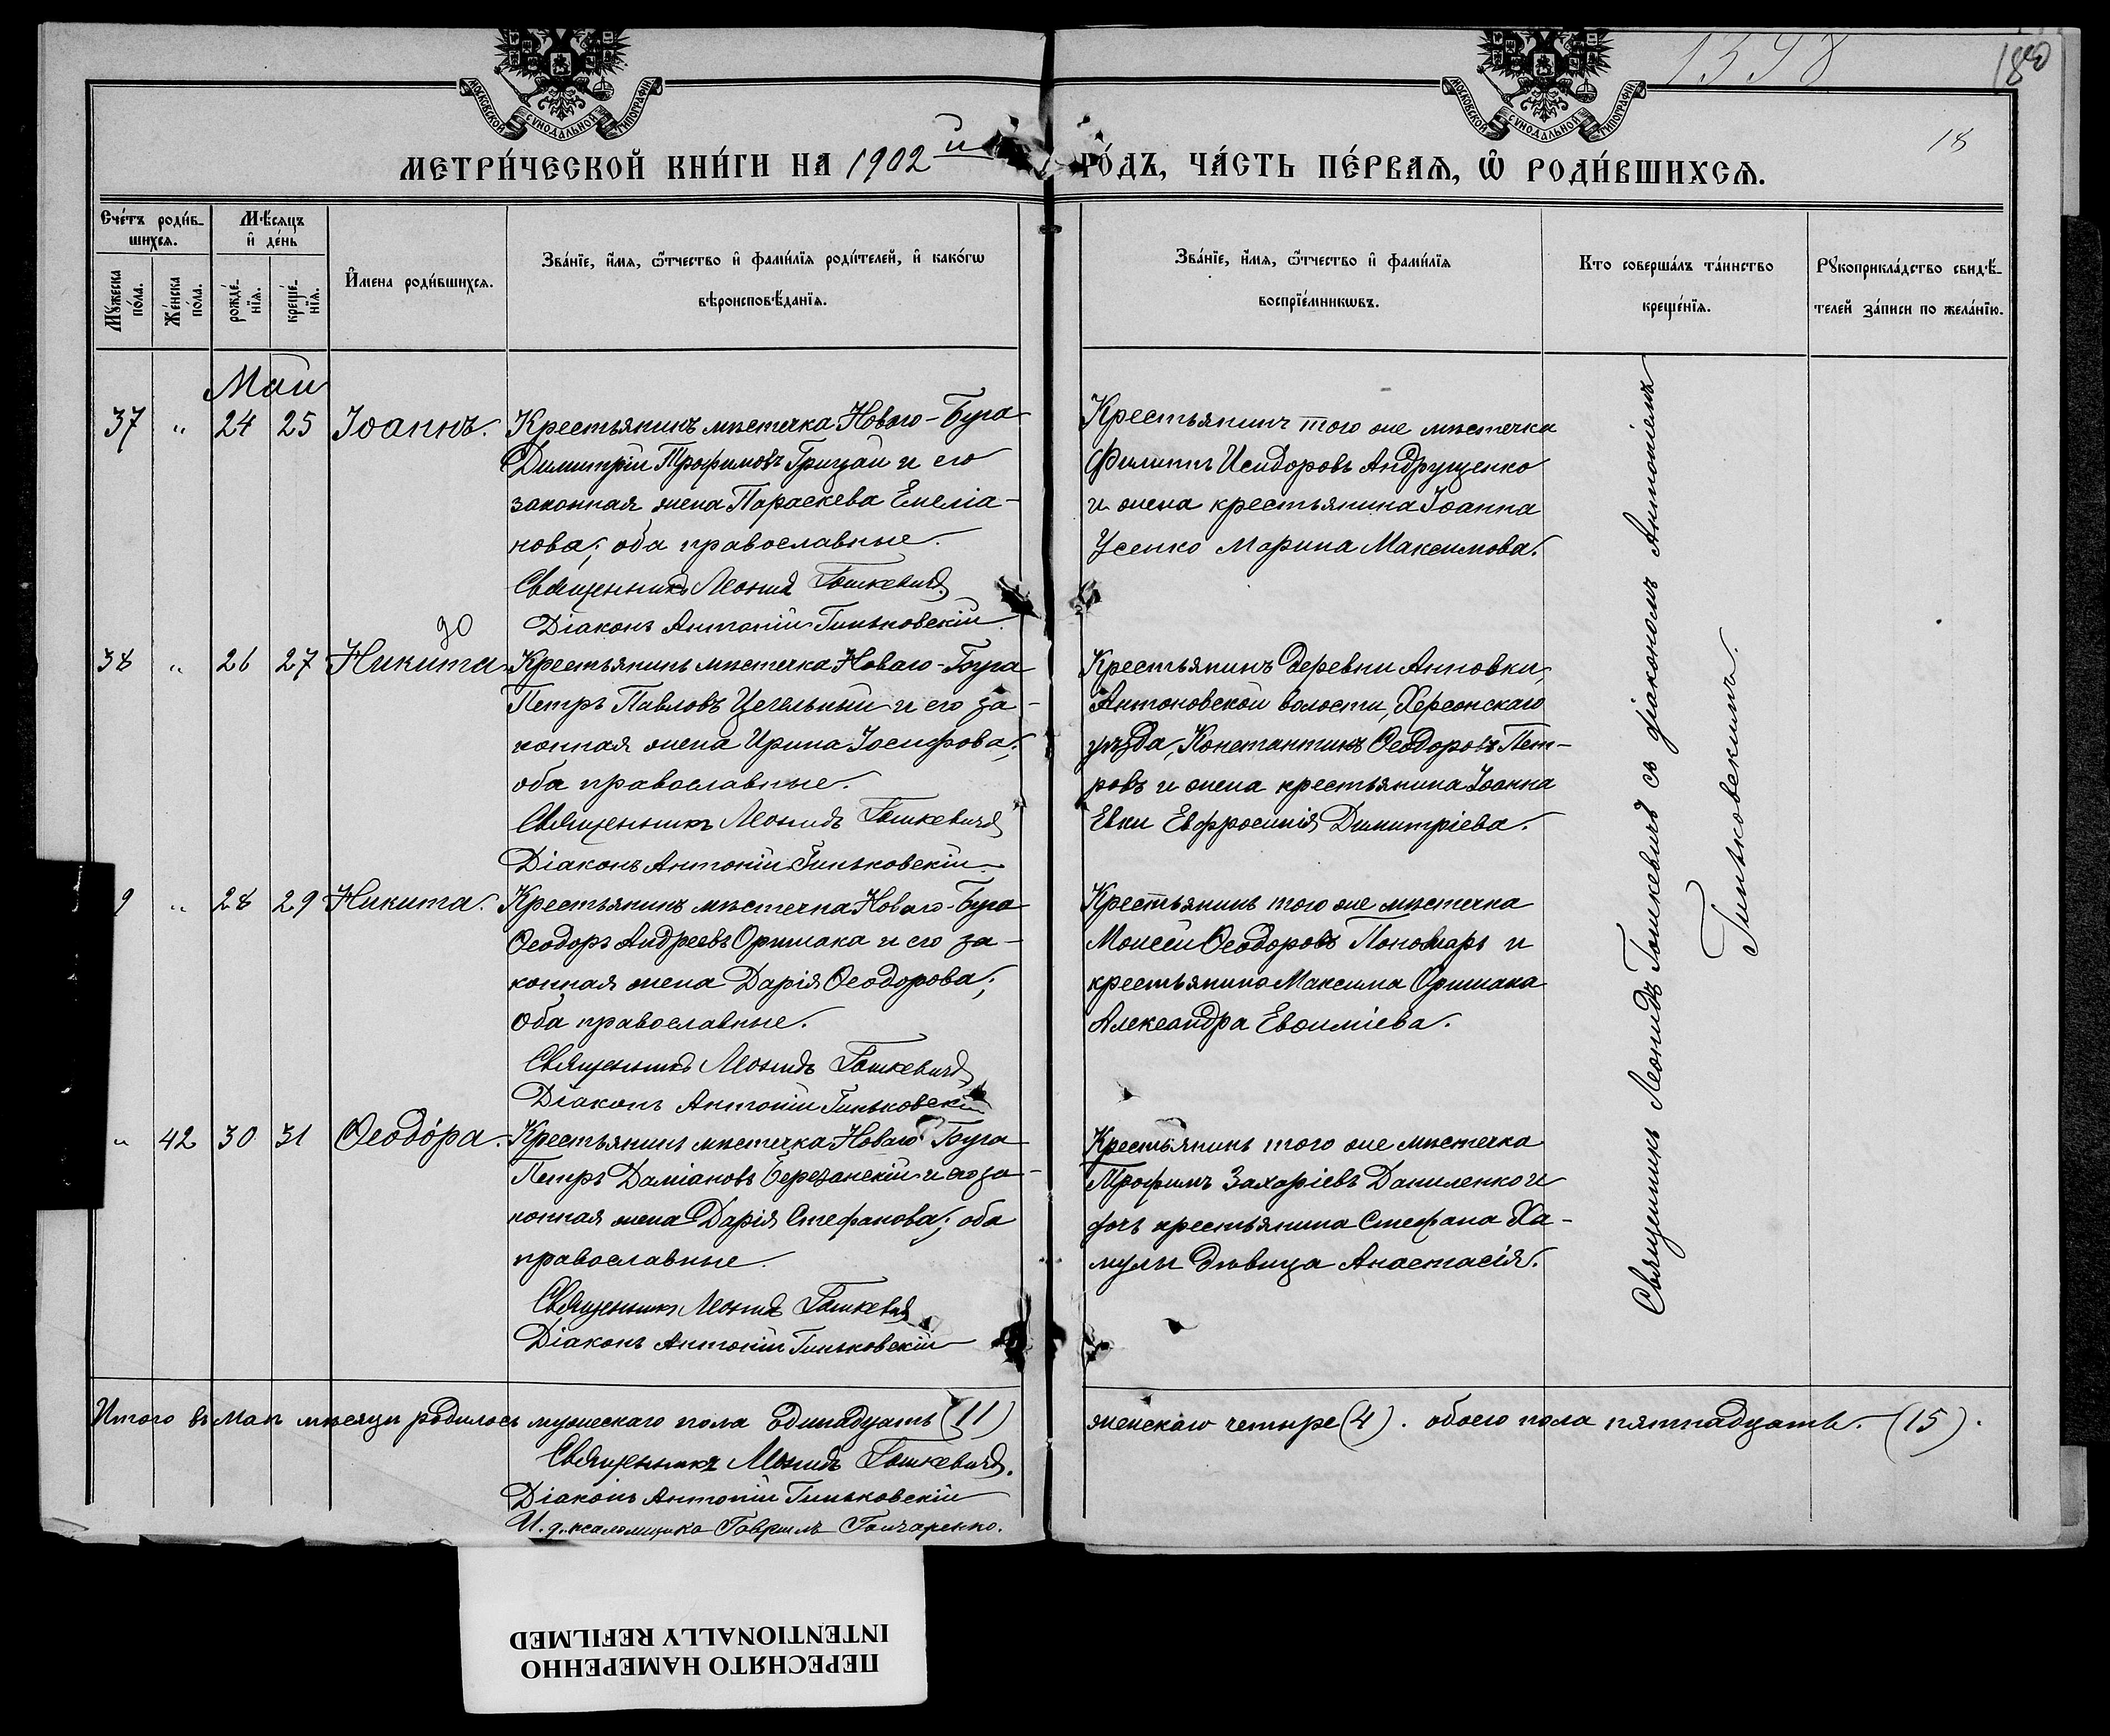 1398
180
18
МОСКОВСКОЙ СѴНОДАЛЬНОЙ ТИПОГРАФІИ
МОСКОВСКОЙ СѴНОДАЛЬНОЙ ТИПОГРАФІИ
МЕТРИ́ЧЕСКОЙ КНИ́ГИ НА 1902й ГО́ДЪ, ЧА́СТЬ ПЕ́РВАѦ, Ѡ҆ РОДИ́ВШИХСѦ.
Сче́тъ роди́в-
шихсѧ.
Мѣ́сѧцъ
и҆ де́нь
Мꙋ́жеска
по́ла.
Же́нска
по́ла.
рожде́-
нїѧ.
креще́-
нїѧ.
И҆мена роди́вшихсѧ.
Зва́нїе, и҆́мѧ, ѻ҆́тчество и҆ фами́лїѧ роди́телей, и҆ како́гѡ
вѣроисповѣ́данїѧ.
Зва́нїе, и҆́мѧ, ѻ҆́тчество и҆ фами́лїѧ
воспрїе́мникѡвъ.
Кто соверша́лъ та́инство
креще́нїѧ.
Рꙋкоприкла́дство свидѣ́-
телей за́писи по жела́нїю.
Май
37 " 24 25 Іоаннъ.
Крестьянинъ мѣстечка Новаго-Буга
Димитрій Трофимовъ Грицай и его
законная жена Параскева Емеліа-
нова; оба православные.
Священникъ Леонид Гошкевичъ
Діаконъ Антоній Гиньковскій
Крестьянинъ того же мѣстечка
Филиппъ Исидоровъ Андрущенко
и жена крестьянина Іоанна
Усенко Марина Максимова.
до
38 " 26 27 Никита
Крестьянинъ мѣстечка Новаго-Буга
Петръ Павловъ Цегельный и его за-
конная жена Ирина Іосифова;
оба православные.
Священникъ Леонидъ Гошкевичъ
Діаконъ Антоній Гиньковскій
Крестьянинъ деревни Анновки,
Антоновской волости, Херсонскаго
уѣзда, Константинъ Ѳеодоровъ Пет-
ровъ и жена крестьянина Іоанна
Евки Евфросинія Димитріева.
9 " 28 29 Никита.
Крестьянинъ мѣстечка Новаго-Буга
Ѳеодоръ Андреевъ Оришака и его за-
конная жена Дарія Ѳеодорова;
оба православные.
Священникъ Леонидъ Гошкевичъ
Діаконъ Антоній Гиньковскій
Крестьянинъ того же мѣстечка
Моисей Ѳеодоровъ Пономарь и
крестьянина Максима Оришака
Александра Евѳиміева.
" 42 30 31 Ѳеодо́ра.
Крестьянинъ мѣстечка Новаго Буга
Петръ Даміановъ Березанскій и его за-
конная жена Дарія Стефанова; оба
православные.
Священникъ Леонидъ Гошкевичъ
Діаконъ Антоній Гиньковскій
Крестьянинъ того же мѣстечка
Трофимъ Захаріевъ Даниленко и
дочь крестьянина Стефана Ха-
мулы дѣвица Анастасія.
Священникъ Леонидъ Гошкевичъ съ діакономъ Антоніемъ
Гиньковскимъ.
Итого въ Маѣ мѣсяцѣ родилось мужескаго пола одинадцать (11) женскаго четыре (4). обоего пола пятнадцать. (15).
Священникъ Леонидъ Гошкевичъ.
Діаконъ Антоній Гиньковскій
И. д. псаломщика Гавриилъ Гончаренко.
ПЕРЕСНЯТО НАМЕРЕННО
INTENTIONALLY REFILMED